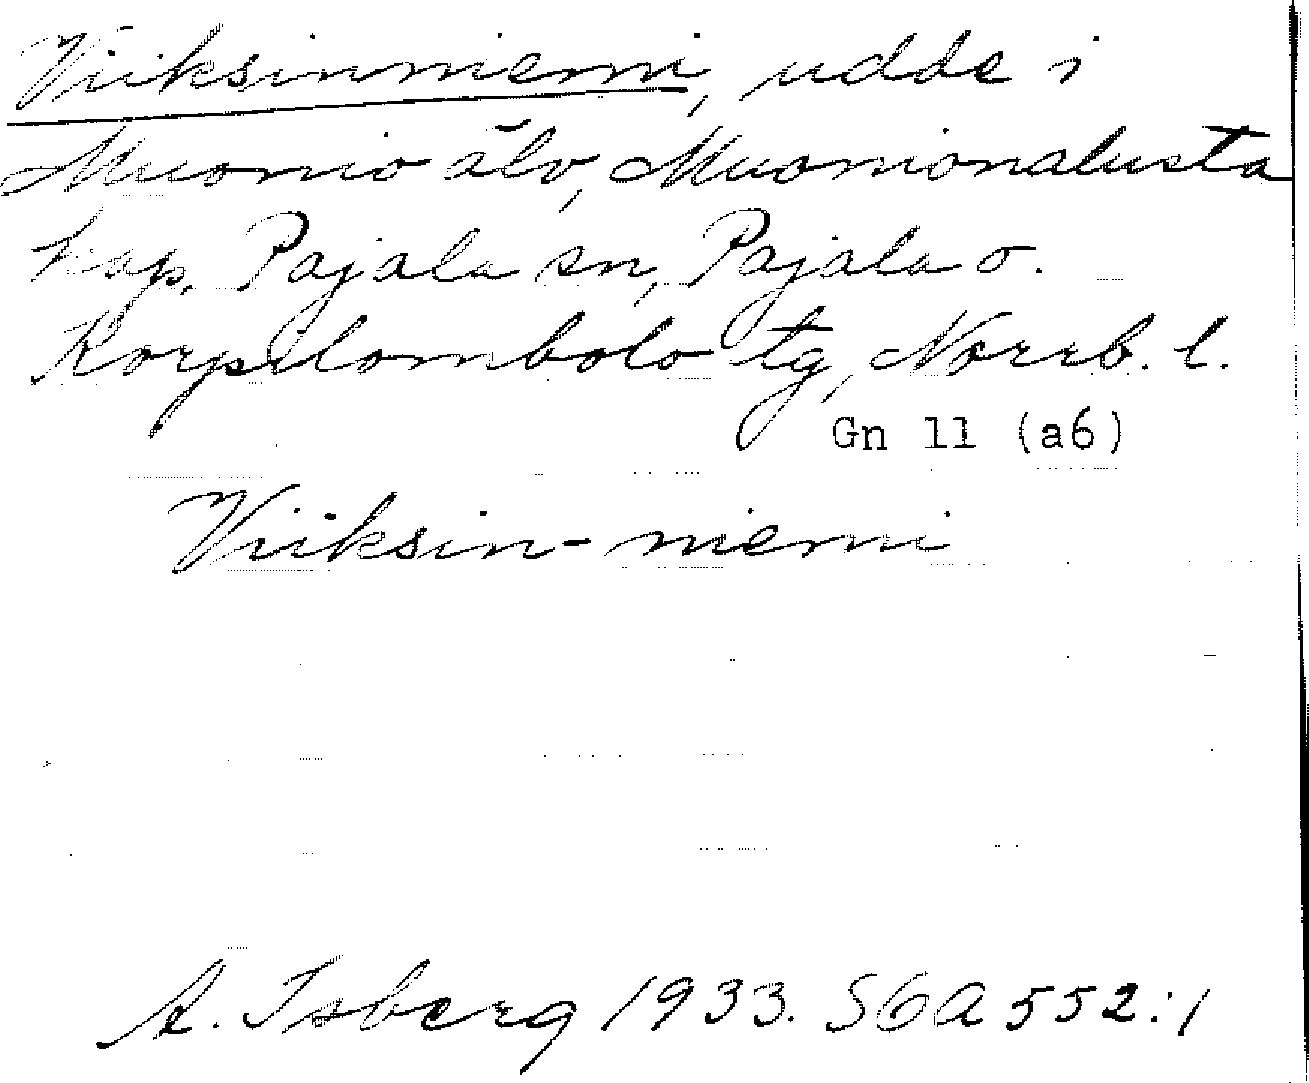 Viiksinniemi, udde i
Muonio älv, Muonionalusta
kap, Pajala sn, Pajala o.
Korpilombolo tg, Norrb. l.
Gn 11 (a6)
Viiksin-niemi
A. Isberg 1933. SGA 552:1